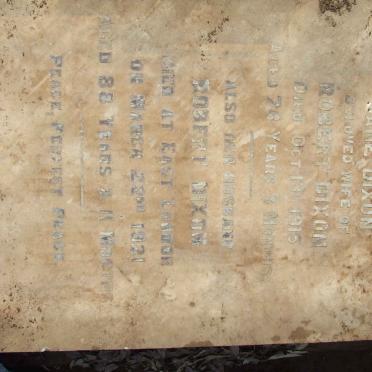 DIXON
BELOVED WIFE OF
ROBERT DIXON
DIED OCT. 1915
AGED 76 YEARS & MONTHS
ALSO HER HUSBAND
ROBERT DIXON
DIED AT EAST LONDON
ON MARCH 23RD 1921
AGED 88 YEARS & 11 MONTHS
PEACE, PERFECT PEACE.